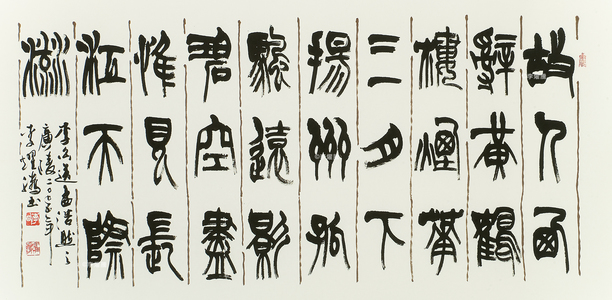 故人西
辭黃鶴
樓煙華
三月下
揚州孤
颿遠影
碧空盡
惟見長
江天際
流
李白送孟浩然之
廣陵二〇〇年
李書